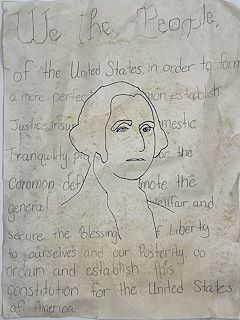 We the People,
of the United States, in order to form
a more perfect establish
Justice, insu mestic
Tranquility, pro for the
Common def mote the
general wellfair, and
secure the Blessing f Liberty
to ourselves and our Posterity, do
ordain and establish this
constitution for the United States
of America